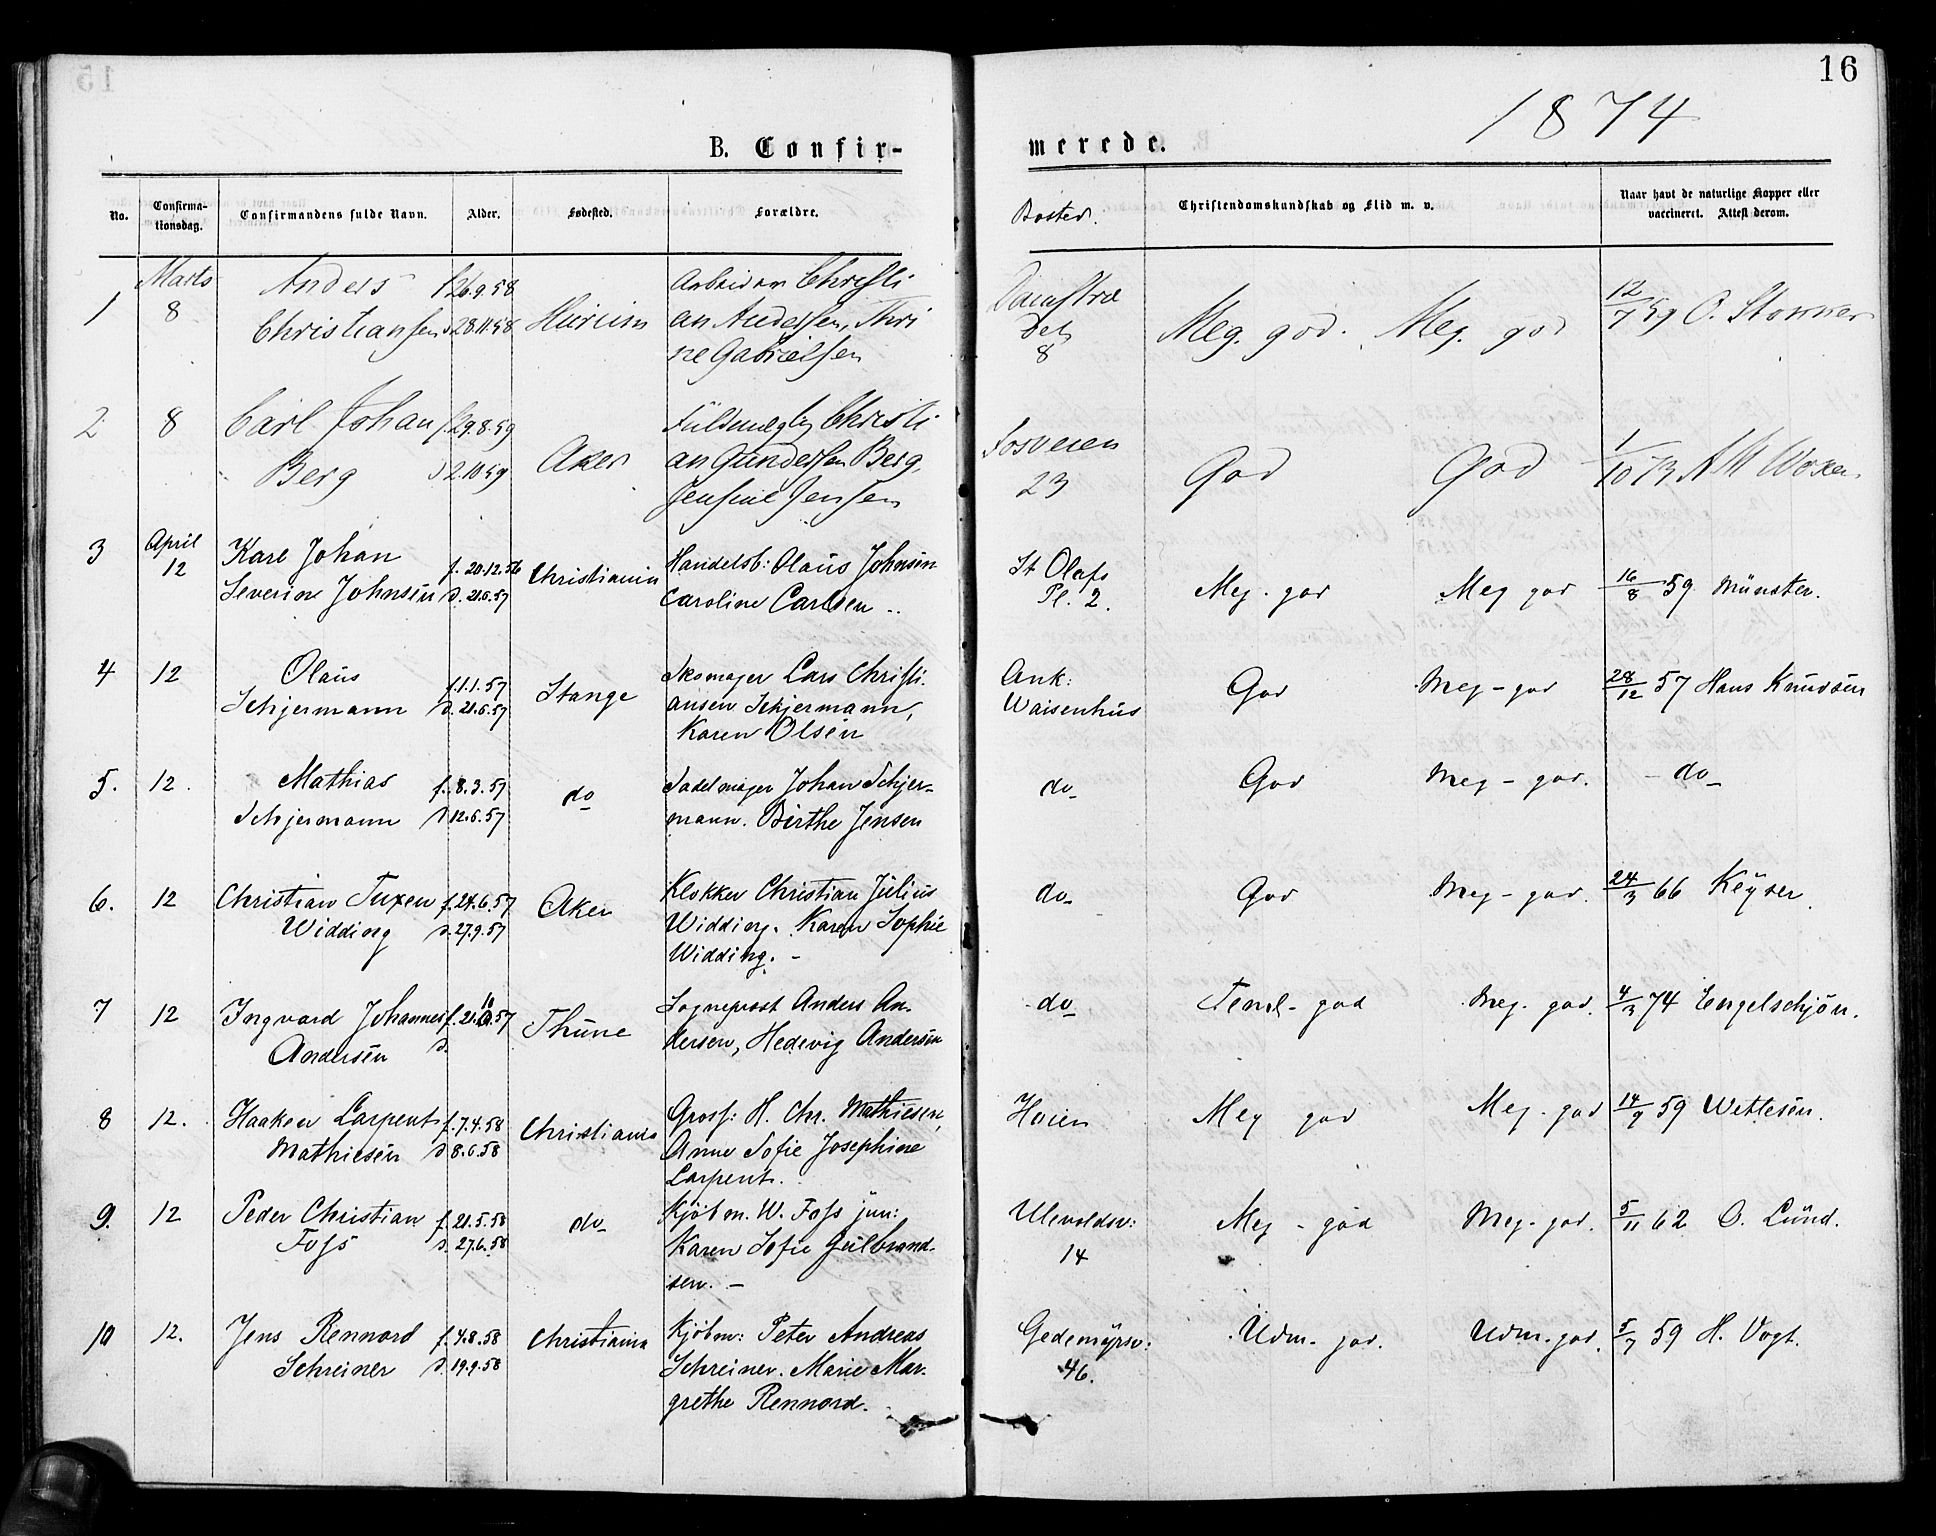 16
1874
B. Confir-
merede.
No.
Confirma-
tionsdag.
Confirmandens fulde Navn.
Alder.
Fødested.
Forældre.
Bosted.
Christendomskundskab og Flid m. v.
Naar havt de naturlige Kopper eller
vaccineret. Attest derom.
1 Marts 8
Anders f. 26.9.58
Christiansen d. 28.11.58
Hurum
Arbeidsm Christi
an Andersen, Thri
ne Gabrielsen
8
Meg. god. Meg. god
12/7 59 O. Storner
2 8
Carl Johan f. 29.8.59
Berg d 2.10.59
Aker
Fuldmægtig Christi
an Gundersen Berg,
Jensine Jensen
Fosveien
23
God God
1/10 73
3 April 12
Karl Johan
Severin Johnsen
f. 20.12.56
d. 21.6.57
Christiania
Handelsb: Olaus Johnsen
Caroline Carlsen
St Olafs
Pl. 2.
Meg. god Meg god
16/8 59 Münster.
4 12
Olaus
Schjermann
f. 1.1.57
d. 21.6.57
Stange
Skomager Lars Christi
ansen Schjermann,
Karen Olsen
Ank:
Waisenhus
God Meg - god
28/12 57 Hans Knudsen
5. 12.
Mathias
Schjermann
f. 8.3.57
d 12.6.57
do
Sadelmager Johan Schjer-
mann. Birthe Jensen
do
God Meg - god.
do
6. 12
Christian Tuxen
Widding
f. 24.6.57
d. 27.9.57
Aker
Klokker Christian Julius
Widding. Karen Sophie
Widding. -
do
God Meg - god.
24/3 66 Keyser
7 12
Ingvard Johannes
Andersen
f. 21.10.57
d.
Thune
Sogneprost Anders An-
dersen, Hedevig Andersen
do
Teml- god Meg. god.
4/3 74 Engelschjøn.
8 12.
Haaken Larpent
Mathiesen
f. 7.4.58
d 8.6.58
Christiania
Gross: H. Chr. Mathiesen,
Anne Sofie Josephine
Larpent.
Meg god Meg. god
14/9 59 Wettesen.
9. 12
Peder Christian
Foss
f. 21.5.58
d. 27.6.58
do
Kjøbm. W. Foss jun:
Karen Sofie Gulbrand-
sen. -
Ulevoldsv:
14
Meg - god Meg - god.
5/11 62 O. Lund.
10 12.
Jens Rennord
Schreiner
f. 4.8.58
d. 19.9.58
Christiania
Kjøbm: Peter Andreas
Schreiner. Marie Mar-
grethe Rennord.
Gedemyrsv:
46.
Udm. god. Udm. god.
5/7 59 H. Vogt.